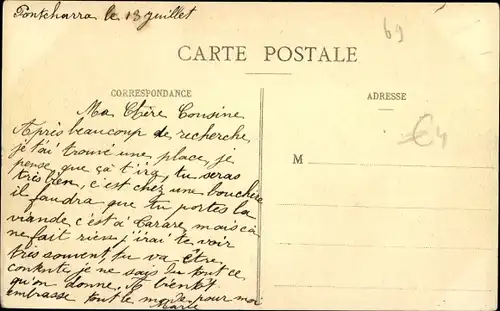 Pontcharra le 13 juillet
69
CARTE POSTALE
CORRESPONDANCE
ADRESSE
Ma Chère Cousine
Après beaucoup de recherche
je t'ai trouvé une place, je
pense que ça t'ira, tu seras
très bien, c'est chez une bouchère
il faudra que tu portes la
viande c'est à Tarare mais ça
ne fait rien j'irai te voir
très souvent tu va être
contente je ne sais du tout ce
qu'on donne. A bientôt
embrasse tout le monde pour moi
Marie
M
€4